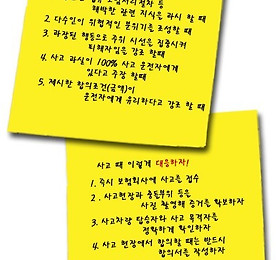 해박한 관련 지식을 과시 할 때
2. 다수인이 위협적인 분위기를 조성할 때
3. 과장된 행동으로 주위 시선을 집중시켜
피해자임을 강조 할때
4. 사고 과실이 100% 사고 운전자에게
있다고 주장 할때
5. 제시한 합의조건(금액)이
운전자에게 유리하다고 강조 할 때
사고 때 이렇게 대응하자!
1. 즉시 보험회사에 사고를 접수
2. 사고현장과 충돌부위 등은
사진 촬영해 증거를 확보하자
3. 사고차량 탑승자와 사고 목격자를
정확하게 확인하자
4. 사고 현장에서 합의할 때는 반드시
합의서를 작성하자